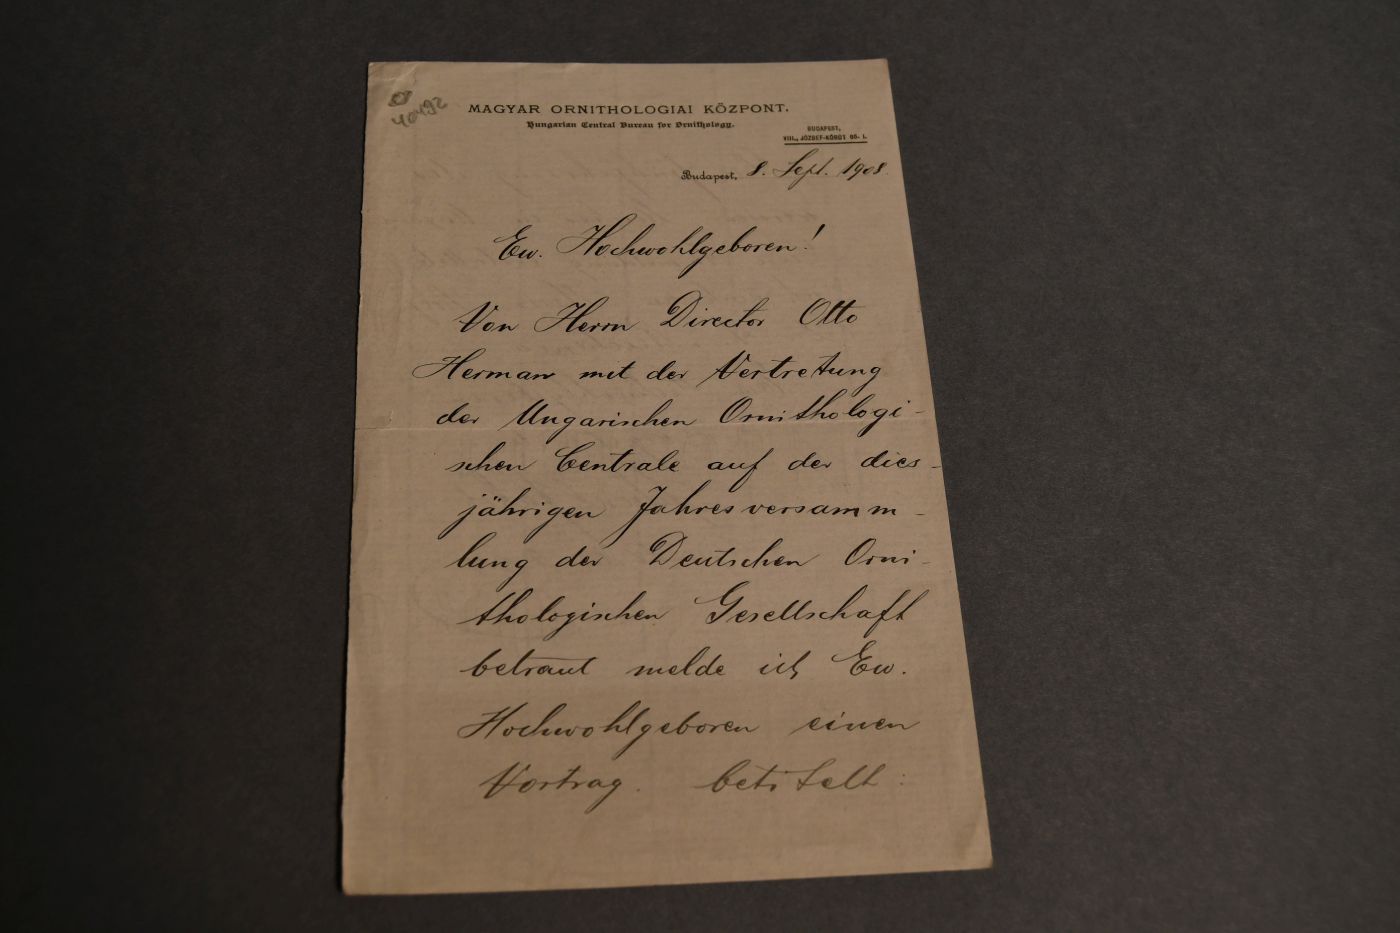 40492
MAGYAR ORNITHOLOGIAI KÖZPONT.
Hungarian Central Bureau for Ornithology.
BUDAPEST,
VIII., JÓZSEF-KÖRÚT 65. I.
Budapest, 8. Sept. 1908.
Ew. Hochwohlgeboren!
Von Herrn Director Otto
Herman mit der Vertretung
der Ungarischen Ornithologi-
schen Centrale auf der dies-
jährigen Jahresversamm-
lung der Deutschen Orni-
thologischen Gesellschaft
betraut melde ich Ew.
Hochwohlgeboren einen
Vortrag. betitelt: